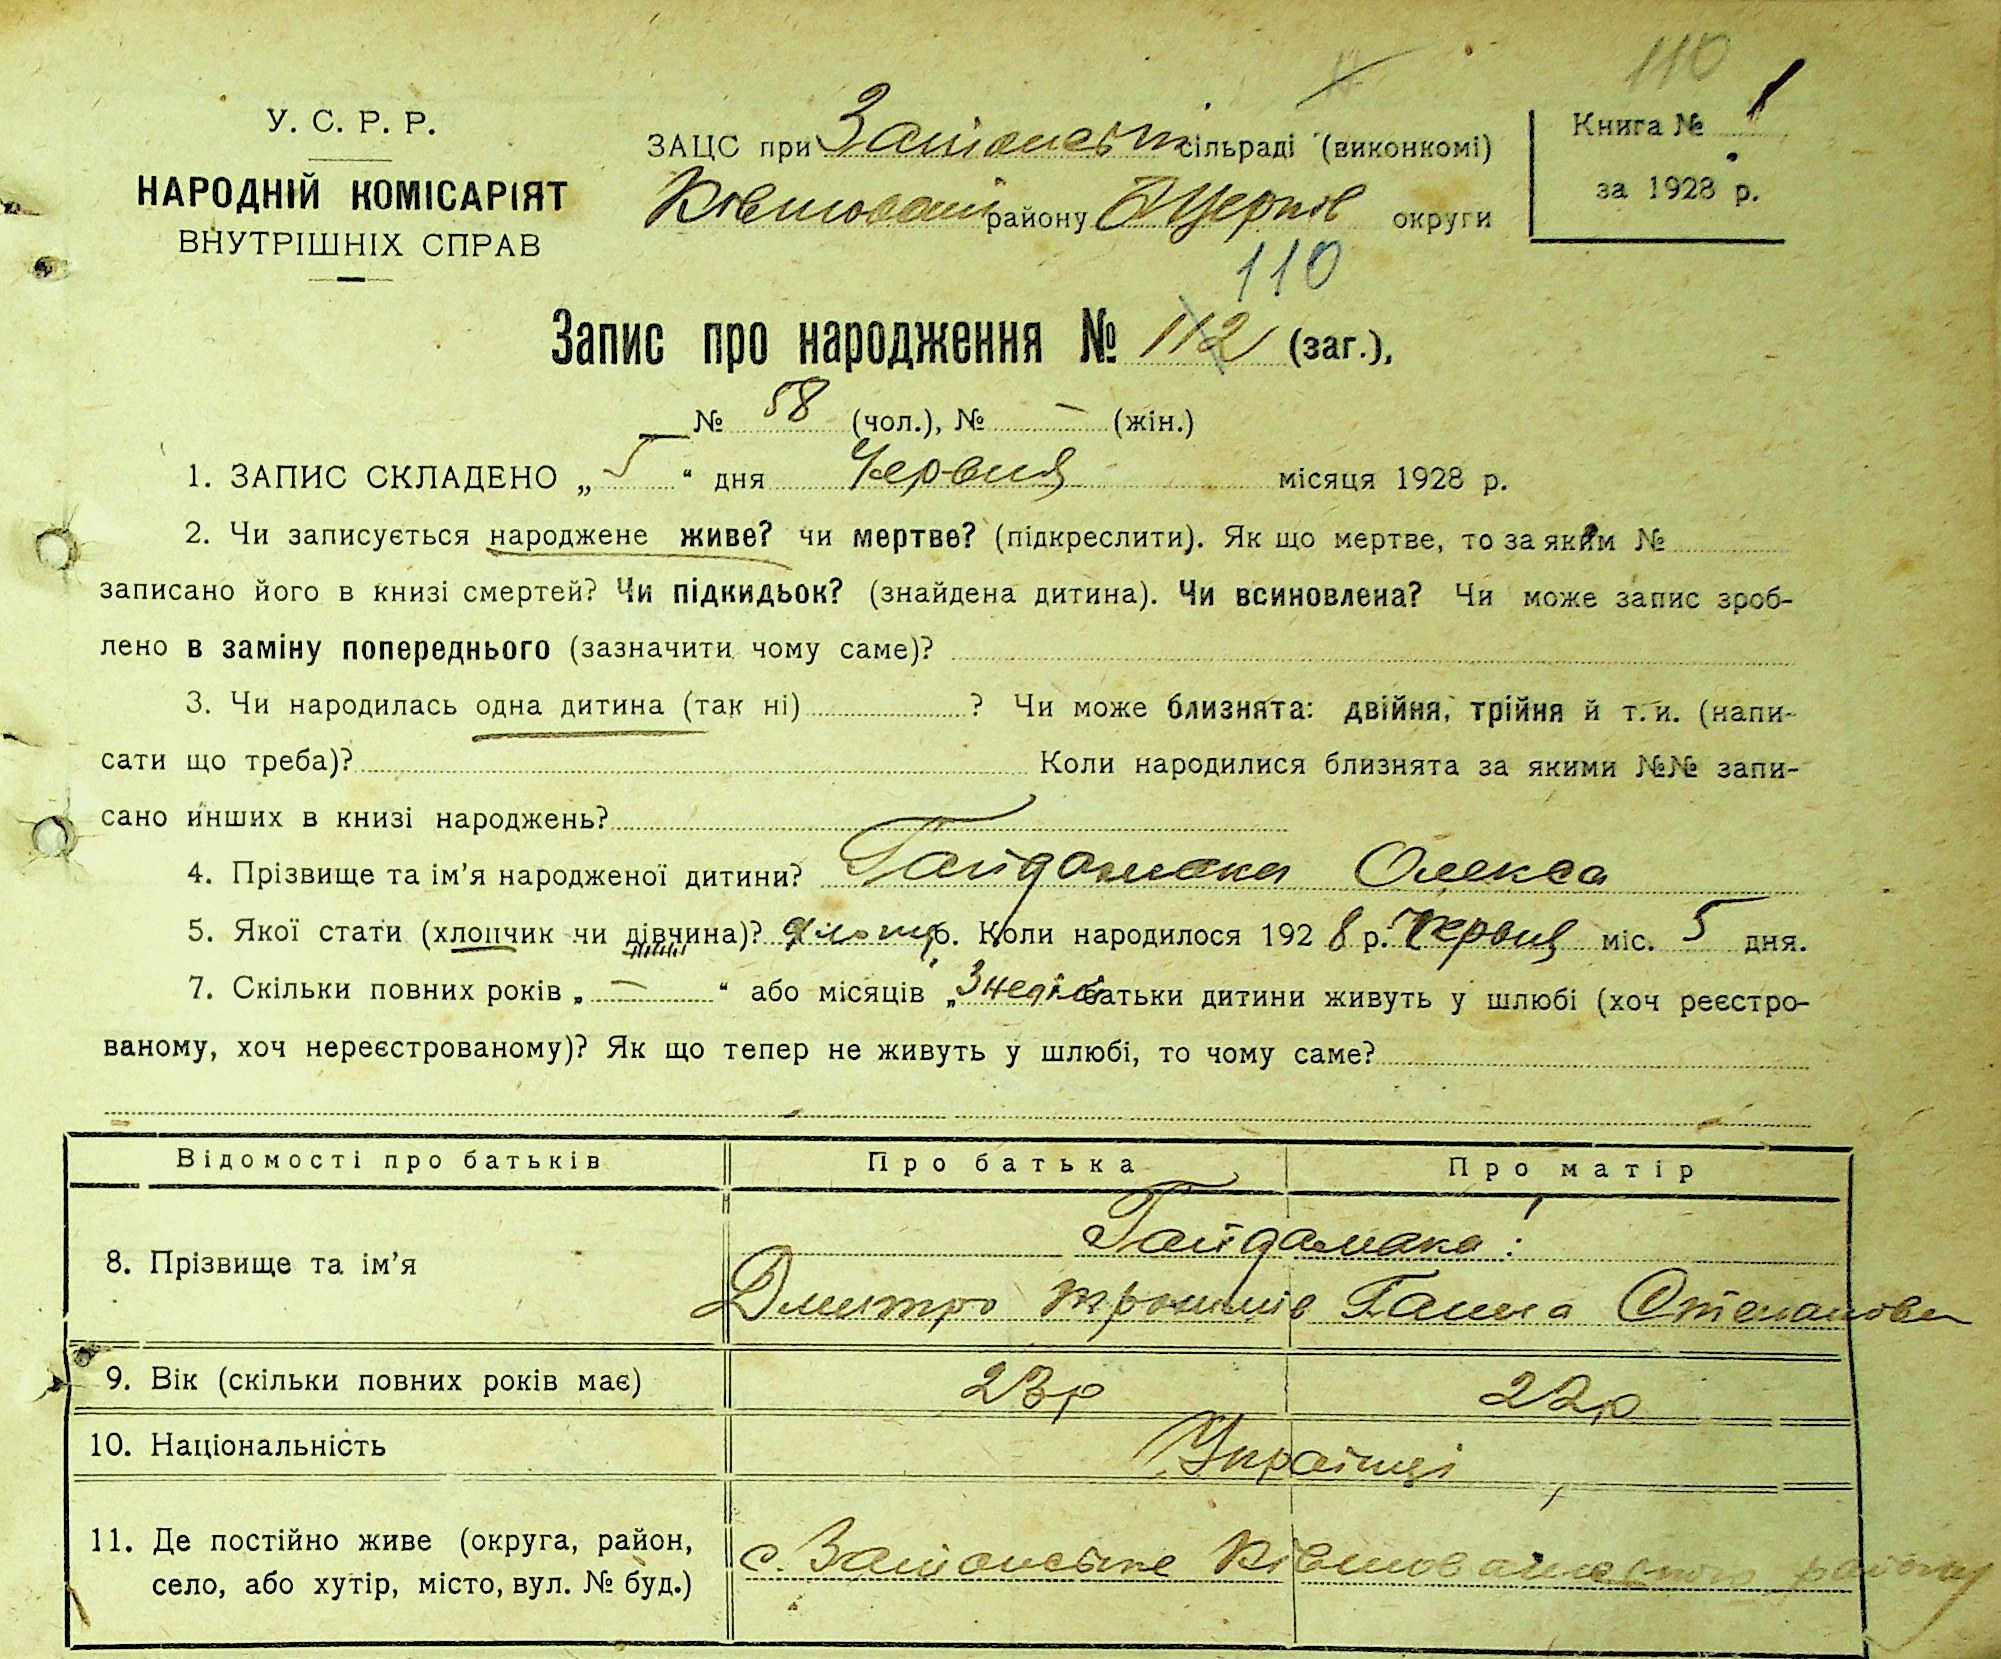 110
У. С. Р. Р.
НАРОДНІЙ КОМІСАРІЯТ
ВНУТРІШНІХ СПРАВ
ЗАЦС при сільраді (виконкомі)
району БЦерків округи
Книга № 1
за 1928 р.
110
Запис про народження № 112 (заг.),
№ 58 (чол.), № — (жін.)
1. ЗАПИС СКЛАДЕНО „ 5 “ дня Червня місяця 1928 р.
2. Чи записується народжене живе? чи мертве? (підкреслити). Як що мертве, то за яким №
записано його в книзі смертей? Чи підкидьок? (знайдена дитина). Чи всиновлена? Чи може запис зроб-
лено в заміну попереднього (зазначити чому саме)?
3. Чи народилась одна дитина (так ні) ? Чи може близнята: двійня, трійня й т. и. (напи-
сати що треба)? Коли народилися близнята за якими №№ запи-
сано инших в книзі народжень?
4. Прізвище та ім’я народженої дитини? Гайдамака Олекса
5. Якої стати (хлопчик чи дівчина)? хлопч 6. Коли народилося 1928 р. Червня міс. 5 дня.
7. Скільки повних років „ — “ або місяців „ 3 неділі батьки дитини живуть у шлюбі (хоч реєстро-
ваному, хоч нереєстрованому)? Як що тепер не живуть у шлюбі, то чому саме?
Відомості про батьків Про батька Про матір
8. Прізвище та ім’я Гайдамака
Дмитро Трохимів Ганна Степанова
9. Вік (скільки повних років має) 23 р 22 р
10. Національність Українці
11. Де постійно живе (округа, район,
село, або хутір, місто, вул. № буд.) с. району